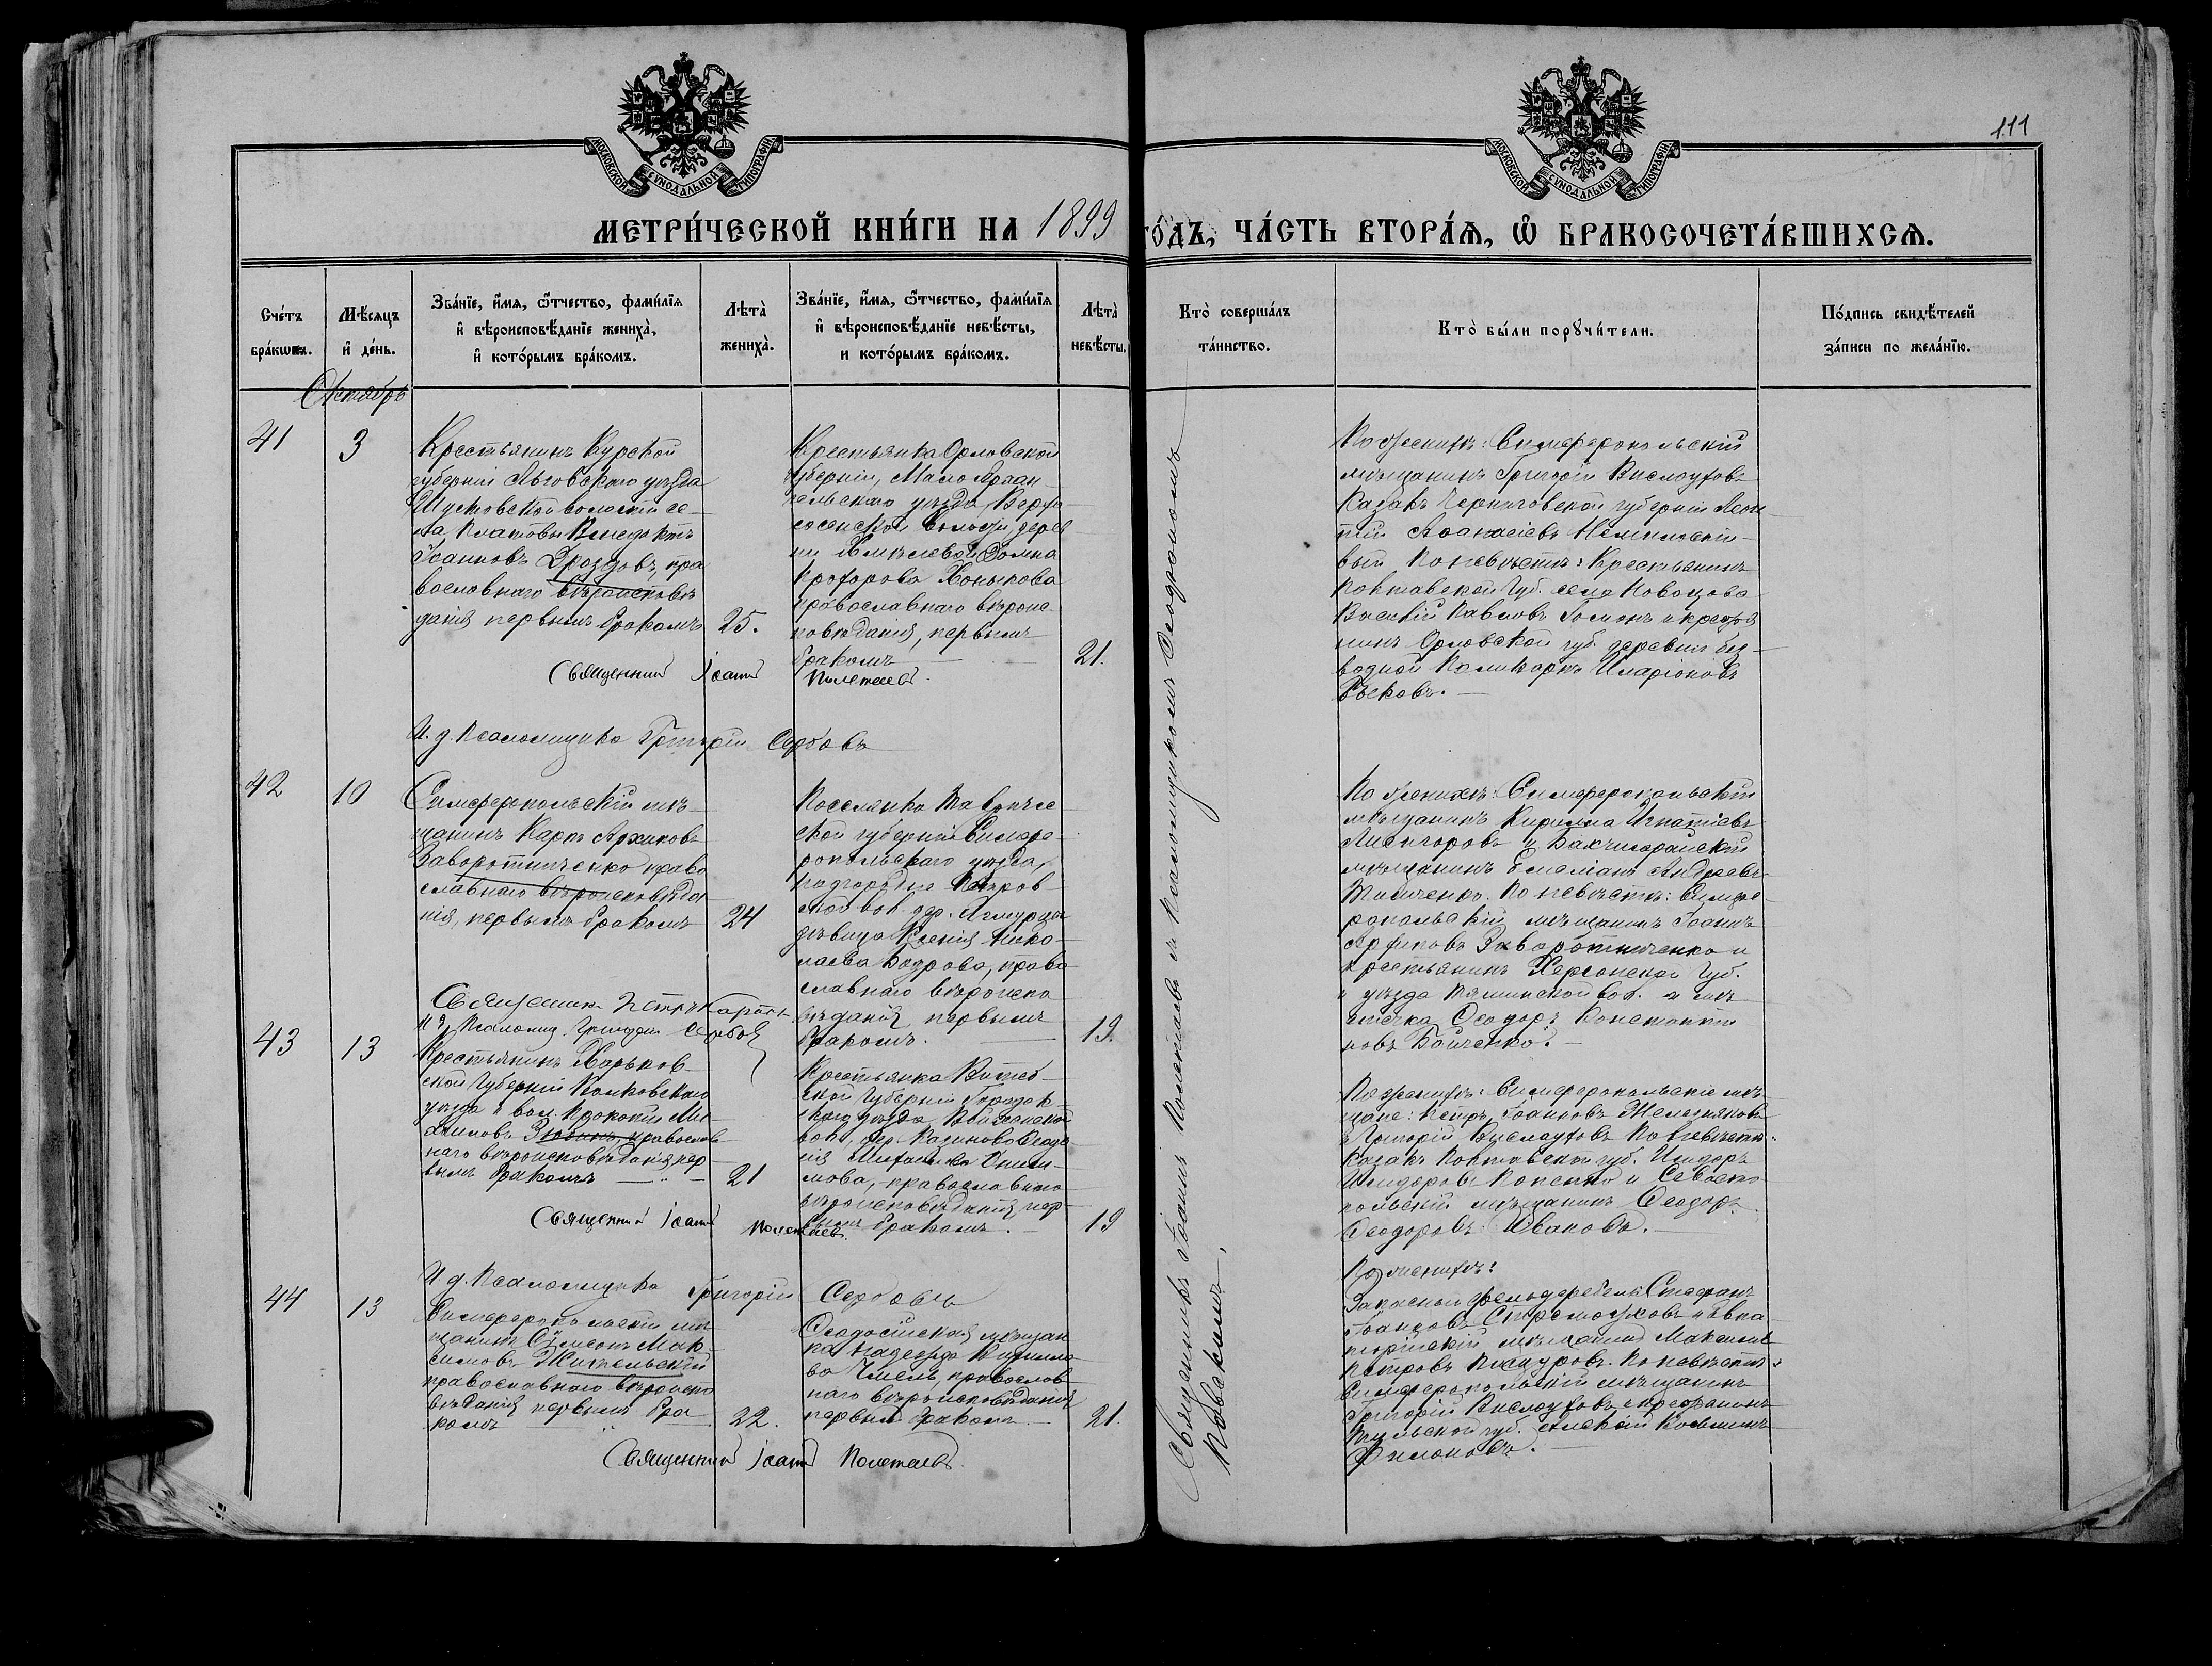 111
МОСКОВСКОЙ СѴНОДАЛЬНОЙ ТИПОГРАФІИ
МОСКОВСКОЙ СѴНОДАЛЬНОЙ ТИПОГРАФІИ
МЕТРИ́ЧЕСКОЙ КНИ́ГИ НА 1899 ГО́ДЪ, ЧА́СТЬ ВТОРА́Ѧ, Ѽ БРАКОСОЧЕТА́ВШИХСѦ.
Сче́тъ
бра́кѡвъ.
Мѣ́сѧцъ
и҆ де́нь.
Зва́нїе, и҆́мѧ, ѻ҆́тчество, фами́лїѧ
и҆ вѣроисповѣ́данїе жениха̀,
и҆ кото́рымъ бра́комъ.
Лѣта̀
жениха̀.
Зва́нїе, и҆́мѧ, ѻ҆́тчество, фами́лїѧ
и҆ вѣроисповѣ́данїе невѣ́сты,
и кото́рымъ бра́комъ.
Лѣта̀
невѣ́сты.
Кто̀ соверша́лъ
та́инство.
Кто̀ бы́ли порꙋчи́тели.
По́дпись свидѣ́телей
за́писи по жела́нїю.
Октябрь
41
3
Крестьянинъ Курской
губерніи Льговскаго уѣзда
волости се-
ла
Іоанновъ Дроздовъ, пра
вославнаго вѣроисповѣ
данія первымъ бракомъ
25.
Крестьянка Орловской
губерніи, Мало Архан
гельскаго уѣзда, Верхо-
сосенской волости дерев
ни Домна
Прохорова Хонькова
православнаго вѣроис-
повѣданія, первымъ
бракомъ
21.
По женихѣ: Симферопольскій
мѣщанинъ Григорій Вислоуховъ
Казакъ Черниговской губерніи Леон
тій Аѳанасіевъ
вый По невѣстѣ: Крестьянинъ
Полтавской губ. села
Василій Павловъ Гомонъ и крестья
нинъ Орловской губ. деревни Без-
водной Поликарпъ Иларіоновъ
Священникъ Іоаннъ Полетаевъ
И. д. Псаломщика Григорій Сербовъ
42
10
Симферопольскій мѣ-
щанинъ Карпъ Архиповъ
Заворотниченко право
славнаго вѣроисповѣда
нія, первымъ бракомъ
24
Поселянка Таврие-
ской губерніи Симфе-
ропольскаго уѣзда,
Подгородне Петров-
ской вол. дер.
дѣвица Ксенія Нико-
лаева Бодрова, право
славнаго вѣроиспо
вѣданія первымъ
бракомъ.
19.
По женихѣ: Симферопольскій
мѣщанинъ Кирилла Игнатіевъ
и Бахчисарайскій
мѣщанинъ Емеліанъ Андреевъ
По невѣстѣ: Симфе-
ропольскій мѣщанинъ Іоаннъ
Архиповъ Заворотниченко и
крестьянинъ Херсонской губ.
и уѣзда вол. и мѣ
стечка Ѳеодоръ Константи
новъ Бойченко.
Священникъ Петръ
И д Псаломщ. Григорій Сербовъ
43
13
Крестьянинъ Харьков-
ской губерніи Волковскаго
уѣзда и вол. Прокопій Ми-
хаиловъ Зюбинъ, православ
наго вѣроисповѣданія пер-
вымъ бракомъ
21
Крестьянка Витеб-
ской губерніи Городок-
скаго уѣзда
вол., дер. Казиново Ѳеодо
сія
мова, православнаго
вѣроисповѣданія пер-
вымъ бракомъ.
19
По женихѣ: Симферопольскіе мѣ-
щане: Петръ Іоанновъ
и Григорій Вислоуховъ По невѣстѣ:
Казакъ Полтавской губ. Исидоръ
Исидоровъ Попенко и Севасто
польскій мѣщанинъ Ѳеодоръ
Ѳеодоровъ Ивановъ.
Священникъ Іоаннъ Полетаевъ.
И д. Псаломщика Григорій Сербовъ
44
13
Симферопольскій мѣ
щанинъ Сѵмеонъ Мак-
симовъ Жительскій
православнаго вѣроиспо
вѣданія первымъ бра-
комъ
22.
Ѳеодосійская мѣщан
ка Надежда Кирилло
ва Чмель, православ
наго вѣроисповѣданія
первымъ бракомъ
21.
По женихѣ:
Запасной Стефанъ
Іоанновъ и Евпа
торійскій мѣщанинъ Максимъ
Петровъ По невѣстѣ:
Симферопольскій мѣщанинъ
Григорій Вислоуховъ, и крестьянинъ
Тульской губ. Алексій Косьминъ
Филоновъ.
Священникъ Іоаннъ Полетаевъ
Священникъ Іоаннъ Полетаевъ съ псаломщикомъ Ѳеодромомъ
Новакомъ.